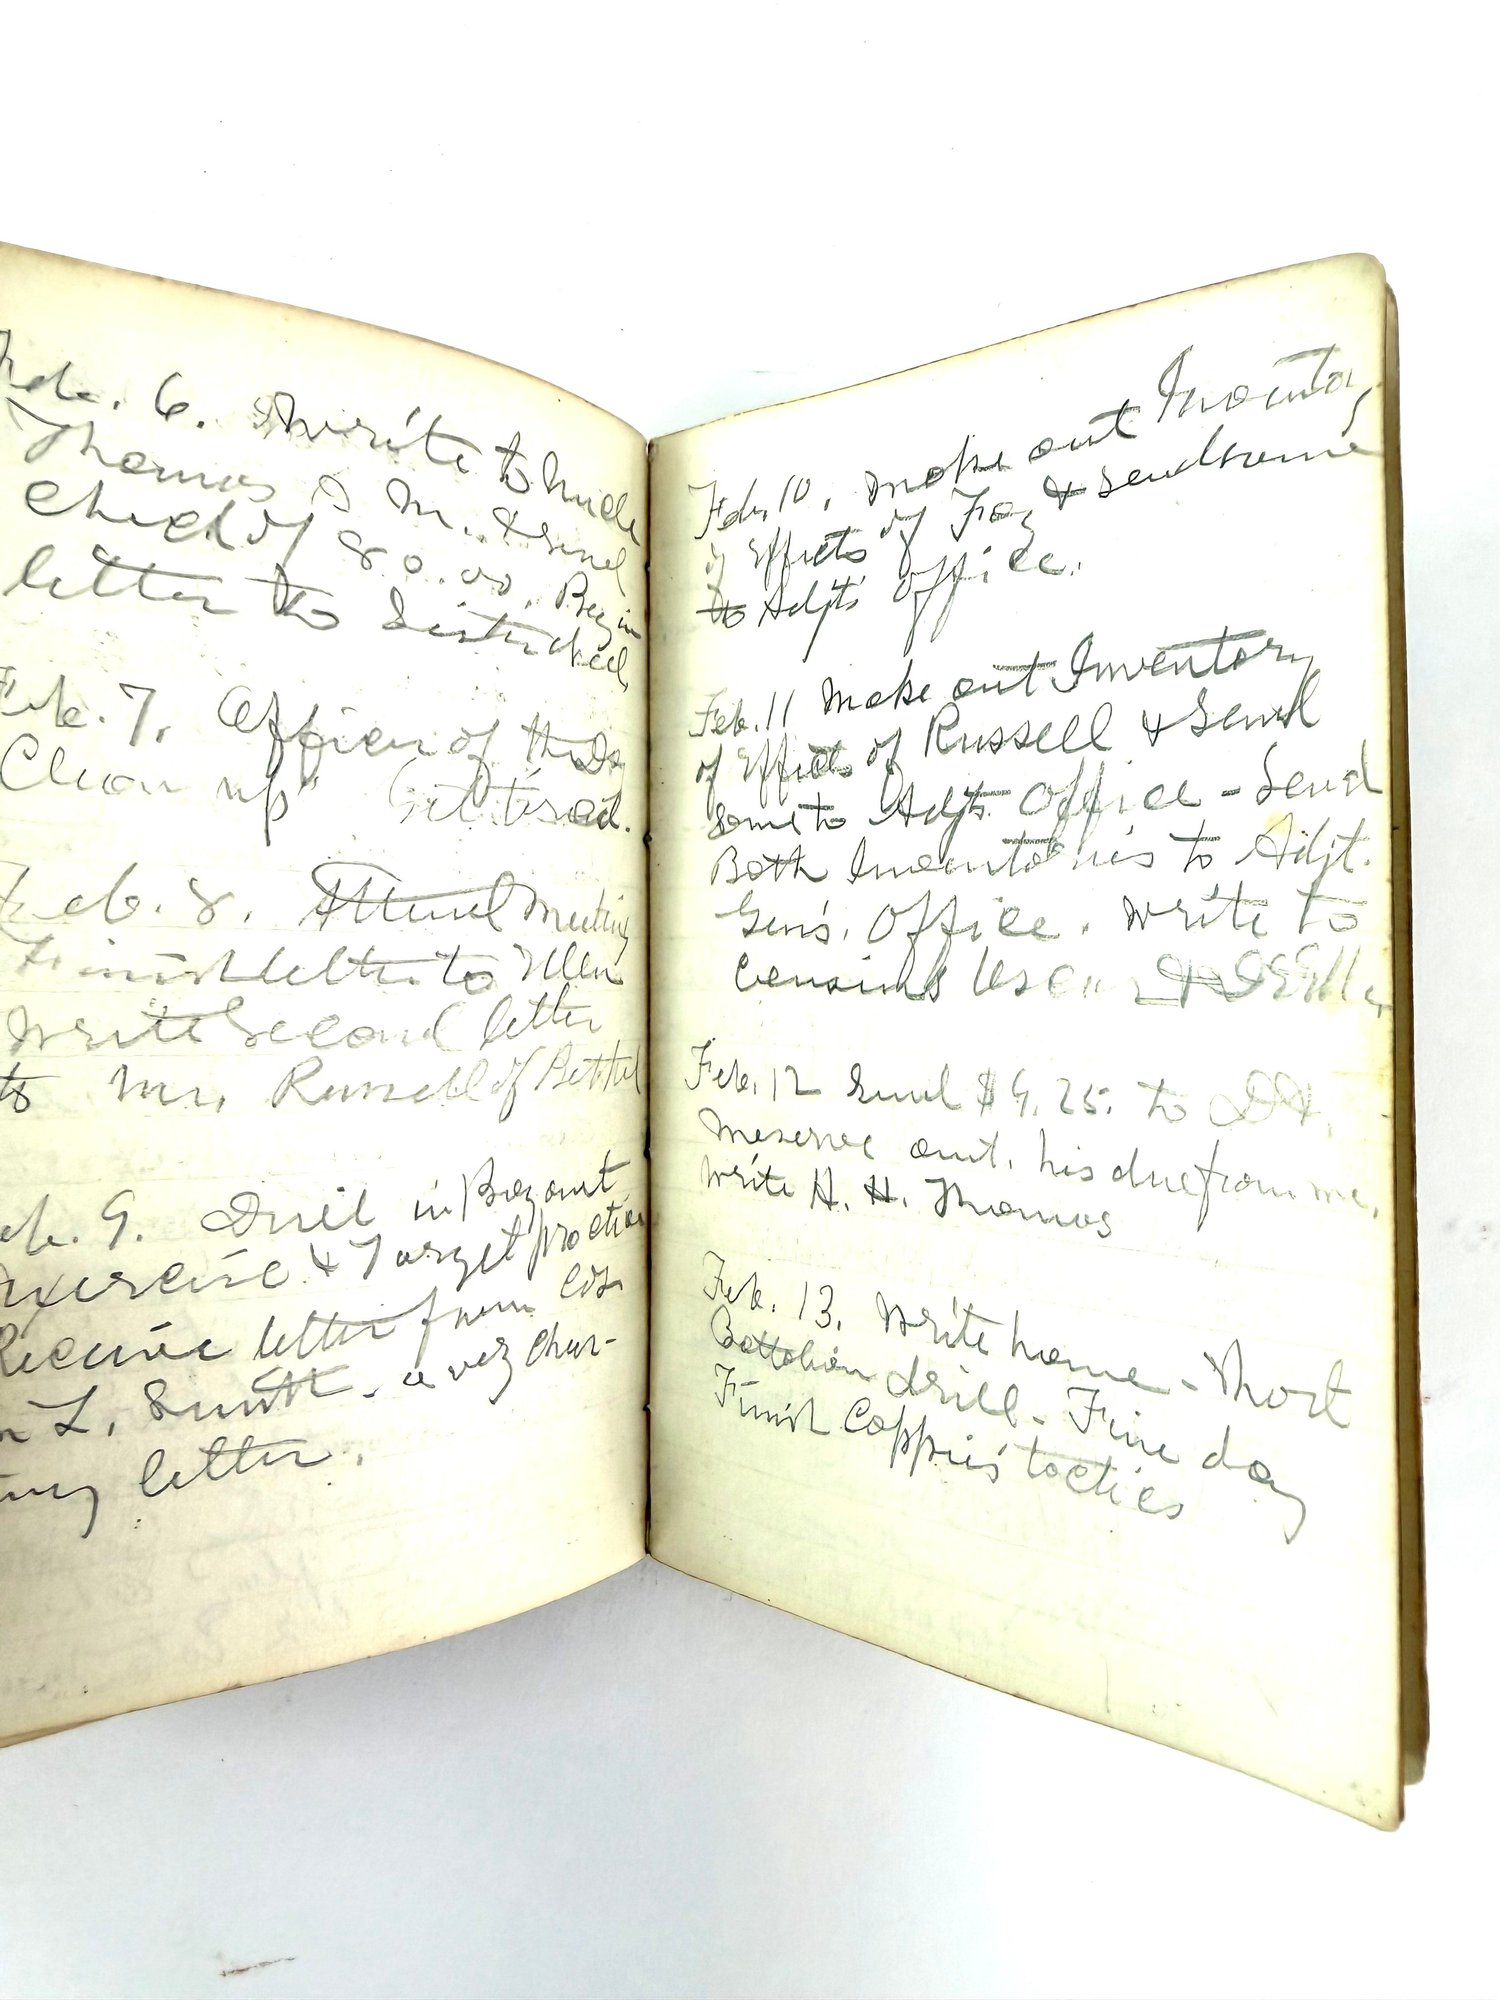 Feb. 6. Write to Uncle
Thomas & M. & send
Check of 80.00. Begin
letter to Sister
Feb. 7. Officer of the Day
Clean up" Get tired.
Feb. 8. Attend meeting
Finish letter to Ellen
Write Second letter
to Mr. Russell of Bethel
Feb. 9. Drill in Bayonet
Exercise & Target practice
Receive letter from
L. Smith - a very
letter.
Feb. 10. Make out Inventory
of Effects of Foy & send same
to Adjts Office.
Feb. 11 Make out Inventory
of Effects of Russell & Send
Same to Adjts Office - Send
Both Inventories to Adjt.
Gen's. Office. Write to
Cousins Oscar &
Feb. 12 Send $9.25. to
Meserve amt. his due from me.
Write H. H. Thomas
Feb. 13. Write home - Short
Battalion drill - Fine day
Finish Coppée's tactics